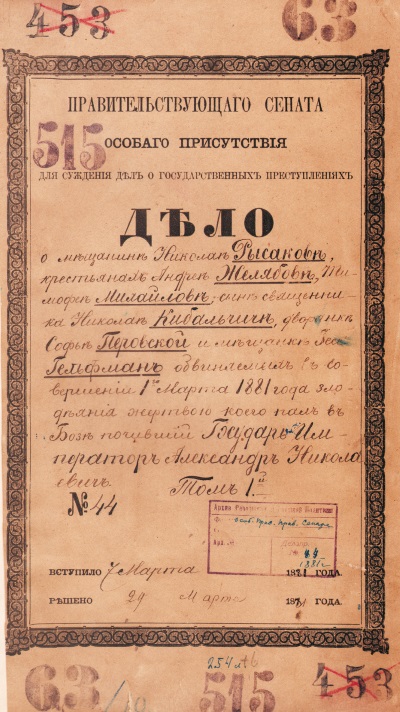 453 63
ПРАВИТЕЛЬСТВУЮЩАГО СЕНАТА
515 ОСОБАГО ПРИСУТСТВІЯ
ДЛЯ СУЖДЕНІЯ ДѢЛЪ О ГОСУДАРСТВЕННЫХЪ ПРЕСТУПЛЕНІЯХЪ
ДѢЛО
о мѣщанинѣ Николаѣ Рысаковѣ,
крестьянахъ Андреѣ Желябовѣ, Ти-
мофеѣ Михайловѣ, сынѣ священни-
ка Николаѣ Кибальчичѣ, дворянкѣ
Софьѣ Перовской и мѣщанкѣ Гесѣ
Гельфманъ обвиняемыхъ въ со-
вершеніи 1го Марта 1881 года зло-
дѣянія жертвою коего палъ въ
Бозѣ почившій Государь Им-
ператоръ Александръ Никола
евичъ. Томъ 1й
№ 44
Особ. Прис. Прав. Сената
44
1881 г.
ВСТУПИЛО 7 Марта 1881 ГОДА.
РѢШЕНО 29 Марта 1881 ГОДА.
254 л
63 515 453